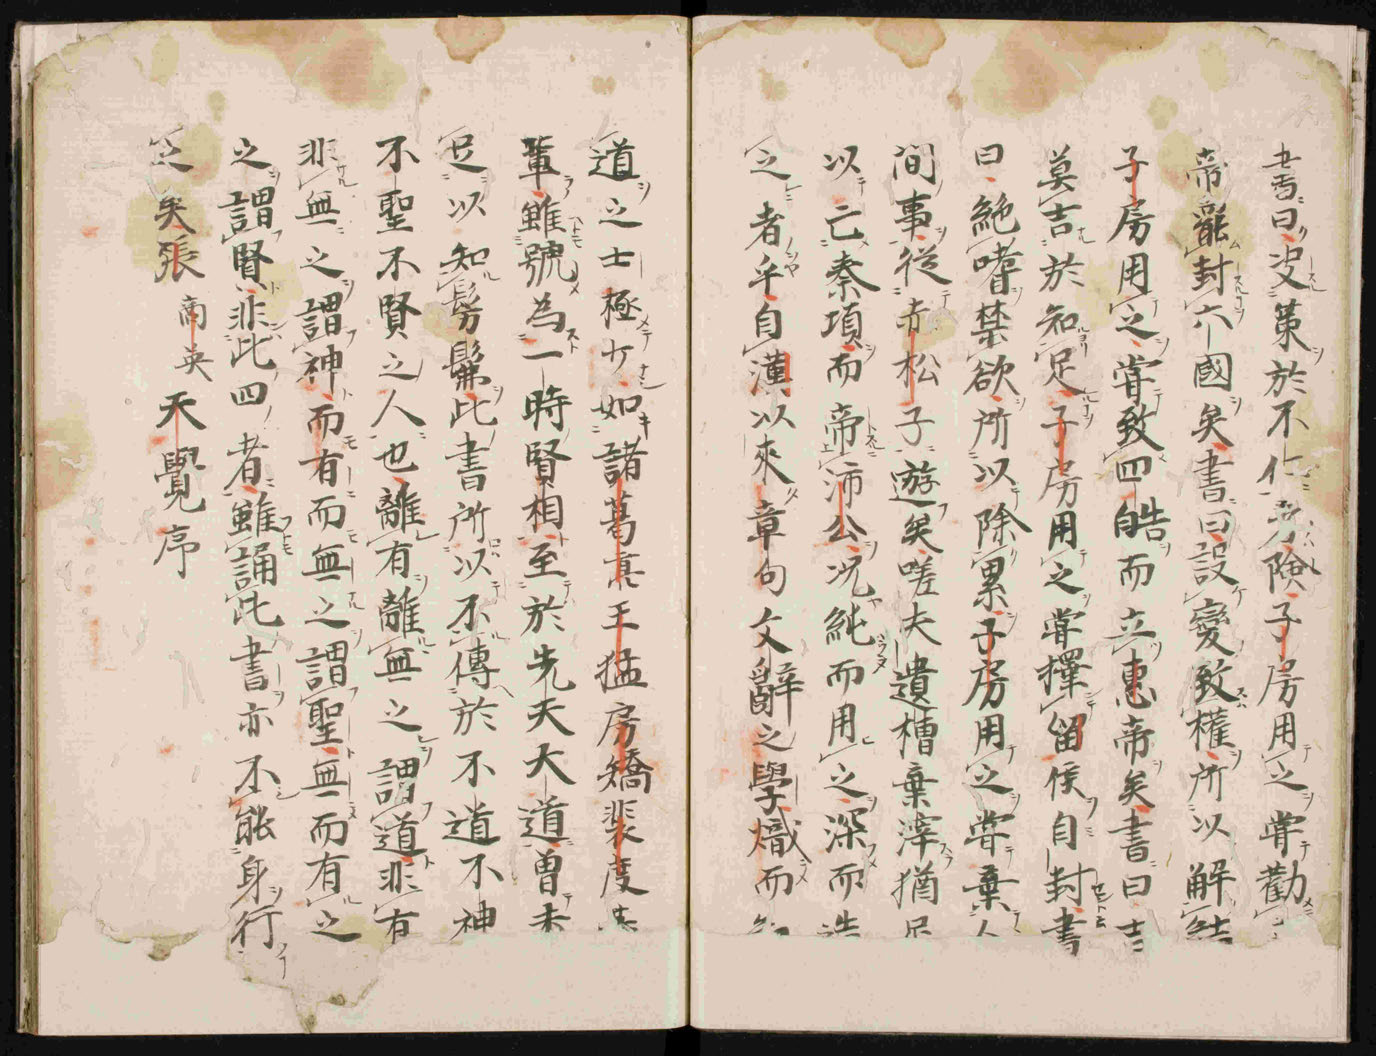 書曰决策於不仁者険子房用之甞勸
帝罷封六國矣書曰設變致權所以解結
子房用之甞致四皓而立惠帝矣書曰吉
莫吉於知足子房用之甞擇留侯自封書
曰絶嗜禁欲所以除累子房用之甞棄人
間事從赤松子遊矣嗟夫遺槽棄滓猶足
以亡秦項而帝沛公况純而用之深而造
之者乎自漢以來章句文辭之學熾而知
道之士極少如諸葛亮王猛房喬裴度等
輩雖號為一時賢相至於先天大道曽未
足以知髣髴此書所以不傳於不道不神
不聖不賢之人也離有離無之謂道非有
非無之謂神而有而無之謂聖無而有之
之謂賢非此四者雖誦此書亦不能身行
之矣張商英天覺序